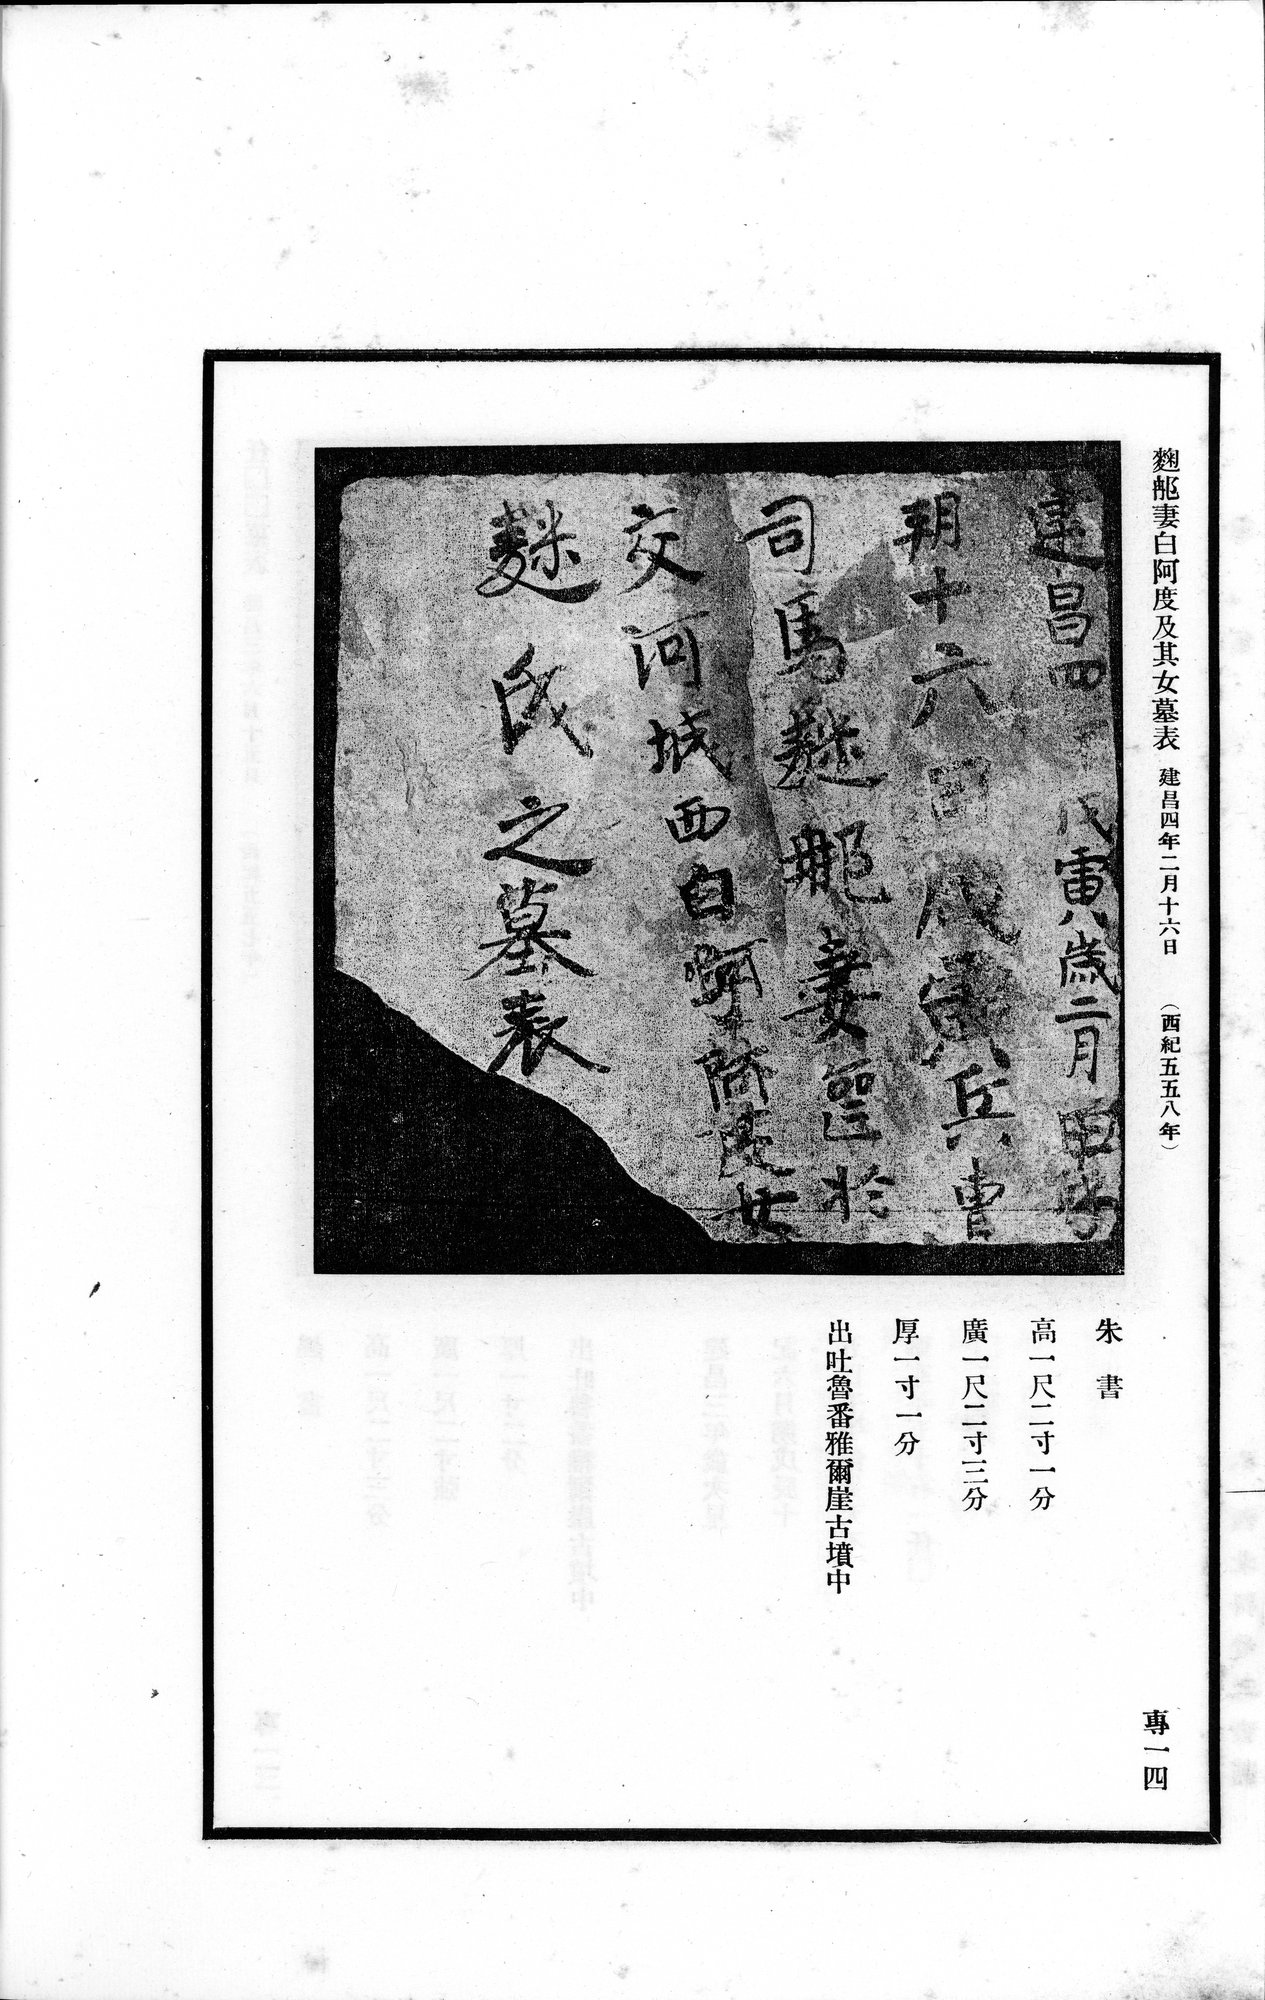 麴䣀妻白阿度及其女墓表 建昌四年二月十六日 (西紀五五八年)
建昌四 戊寅歲二月
朔十六日 兵曹
司馬麴 妻 於
交河城西白 阿度女
麴氏之墓表
朱書
高一尺二寸一分
廣一尺二寸三分
厚一寸一分
出吐魯番雅爾崖古墳中
專一四